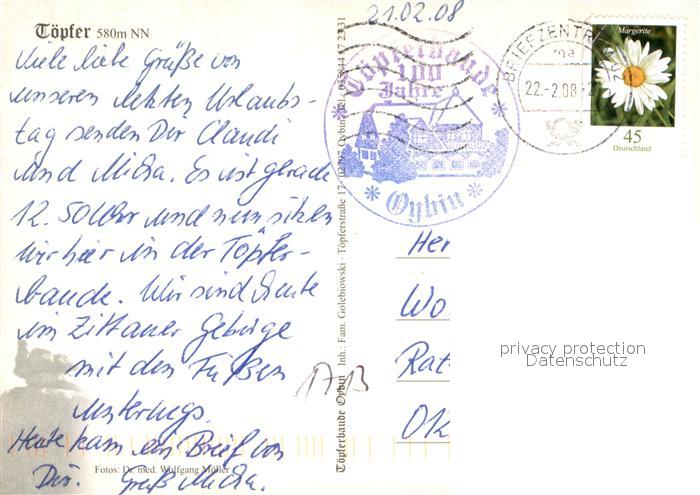 21.02.08
Töpfer 580m NN
Viele liebe Grüße von
unserem letzten Urlaubs-
tag senden Dir Claudi
und Micha. Es ist gerade
12.50 Uhr und nun sitzen
wir hier in der Töpfer-
baude. Wir sind heute
im Zittauer Gebirge
mit den Füßen
unterwegs.
Heute kam ein Brief von
Dir. Gruß Micha.
Fotos: Dr. med. Wolfgang Müller
Töpferbaude Oybin Inh.: Fam. Golebiowski · Töpferstraße 17 · 02797 Oybin
Töpferbaude
100
Jahre
* Oybin *
BRIEFZENTR
ma
22.-2.08
Margerite
45
Deutschland
1713
Her
Wo
Rat
privacy protection
Datenschutz